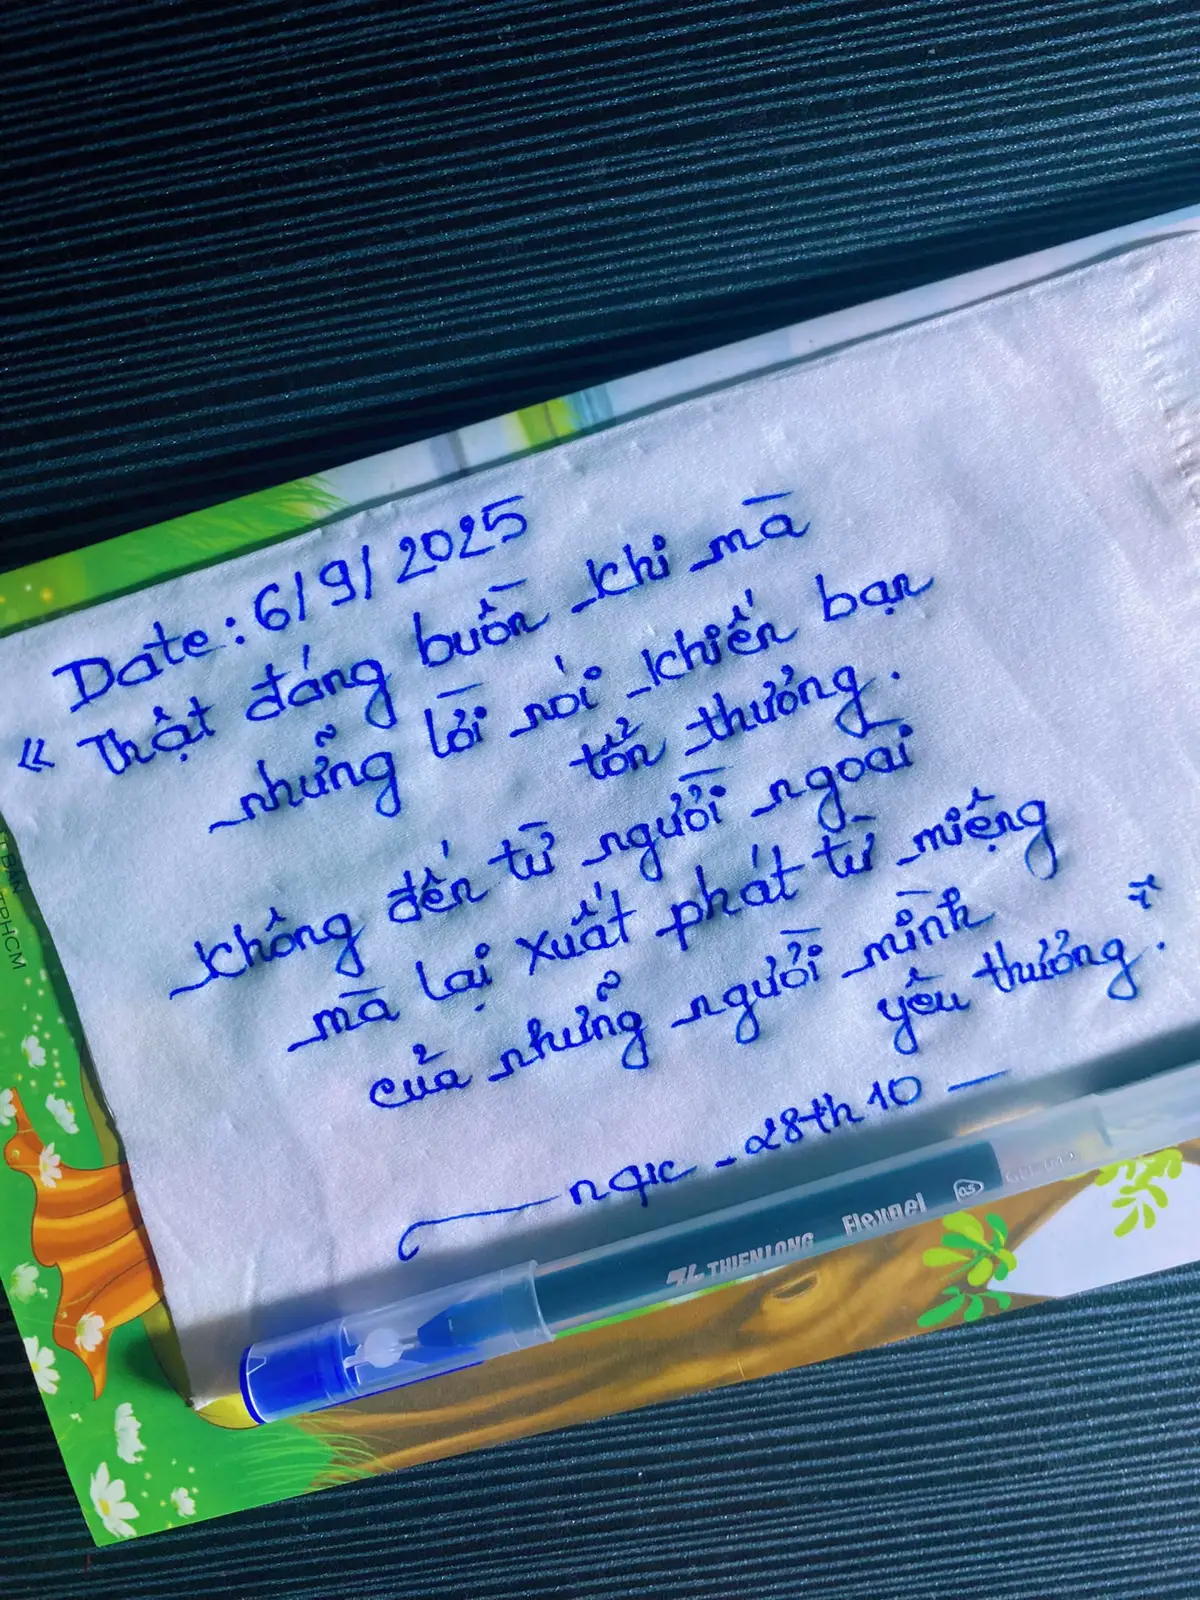 Date: 6/9/2025
“ Thật đáng buồn khi mà
những lời nói khiến bạn
tổn thương.
không đến từ người ngoài
mà lại xuất phát từ miệng
của những người mình
yêu thương. ”
28th10
THIENLONG Flexgel 0.5
BẢN
TPHCM